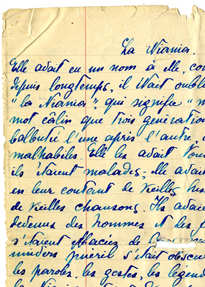 La Niania.
Elle avait eu un nom à elle
depuis longtemps, il était oubl
"la Niania" qui signifie "
mot calin que trois génération
balbutié l'une après l'autre,
malhabiles. Elle les avait
ils étaient malades; elle avai
en leur contant de vieilles his
de vieilles chansons. Ils avai
devenus des hommes et les
s'étaient effacées de
univers puéril s'était obscu
les paroles, les gestes, les legend